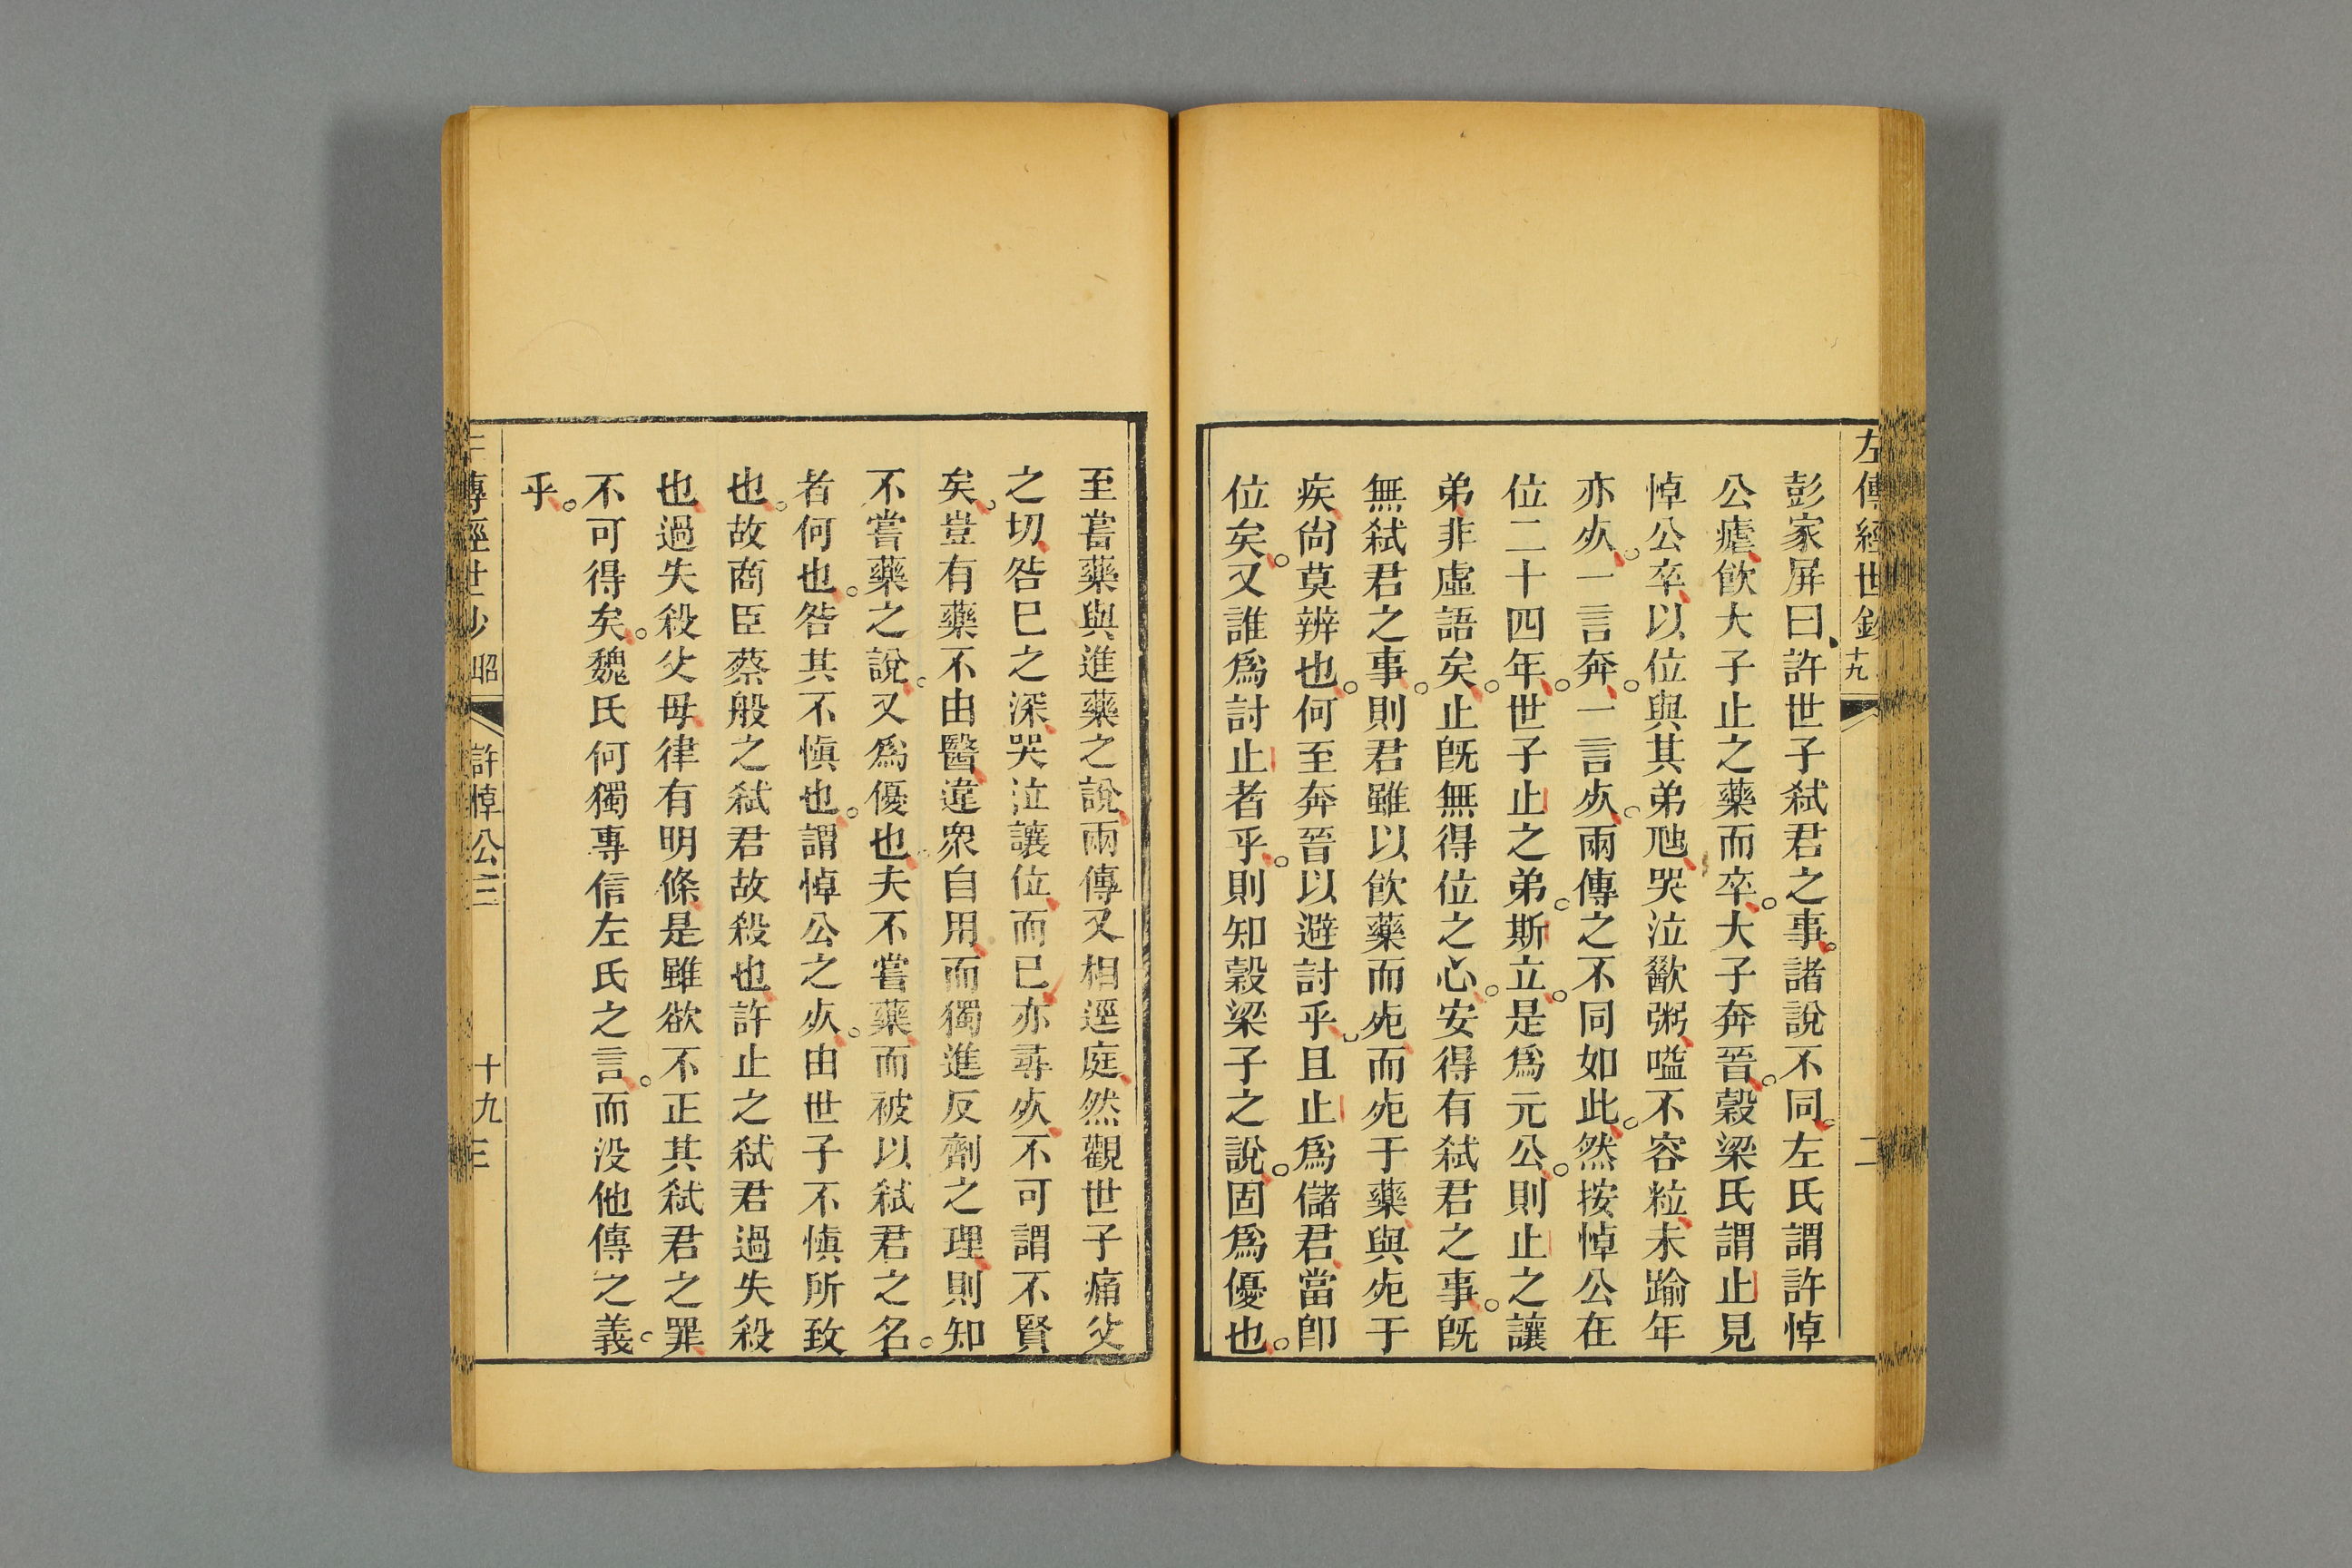 左傳經世鈔 十九 二
彭家屏曰許世子弑君之事諸說不同左氏謂許悼
公瘧飲大子止之藥而卒大子奔晉穀梁氏謂止見
悼公卒以位與其弟虺哭泣歠粥嗌不容粒未踰年
亦𣦸一言奔一言𣦸兩傳之不同如此然按悼公在
位二十四年世子止之弟斯立是爲元公則止之讓
弟非虛語矣止旣無得位之心安得有弑君之事旣
無弑君之事則君雖以飮藥而死而死于藥與死于
疾尙莫辨也何至奔晉以避討乎且止爲儲君當卽
位矣又誰爲討止者乎則知穀梁子之說固爲優也
至嘗藥與進藥之說兩傳又相逕庭然觀世子痛父
之切咎已之深哭泣讓位而已亦尋𣦸不可謂不賢
矣豈有藥不由醫違衆自用而獨進反劑之理則知
不嘗藥之說又爲優也夫不嘗藥而被以弑君之名
者何也咎其不愼也謂悼公之𣦸由世子不愼所致
也故商臣蔡般之弑君故殺也許止之弑君過失殺
也過失殺父母律有明條是雖欲不正其弑君之罪
不可得矣魏氏何獨專信左氏之言而没他傳之義
乎
傳經世鈔 昭 許悼公三 十九 三